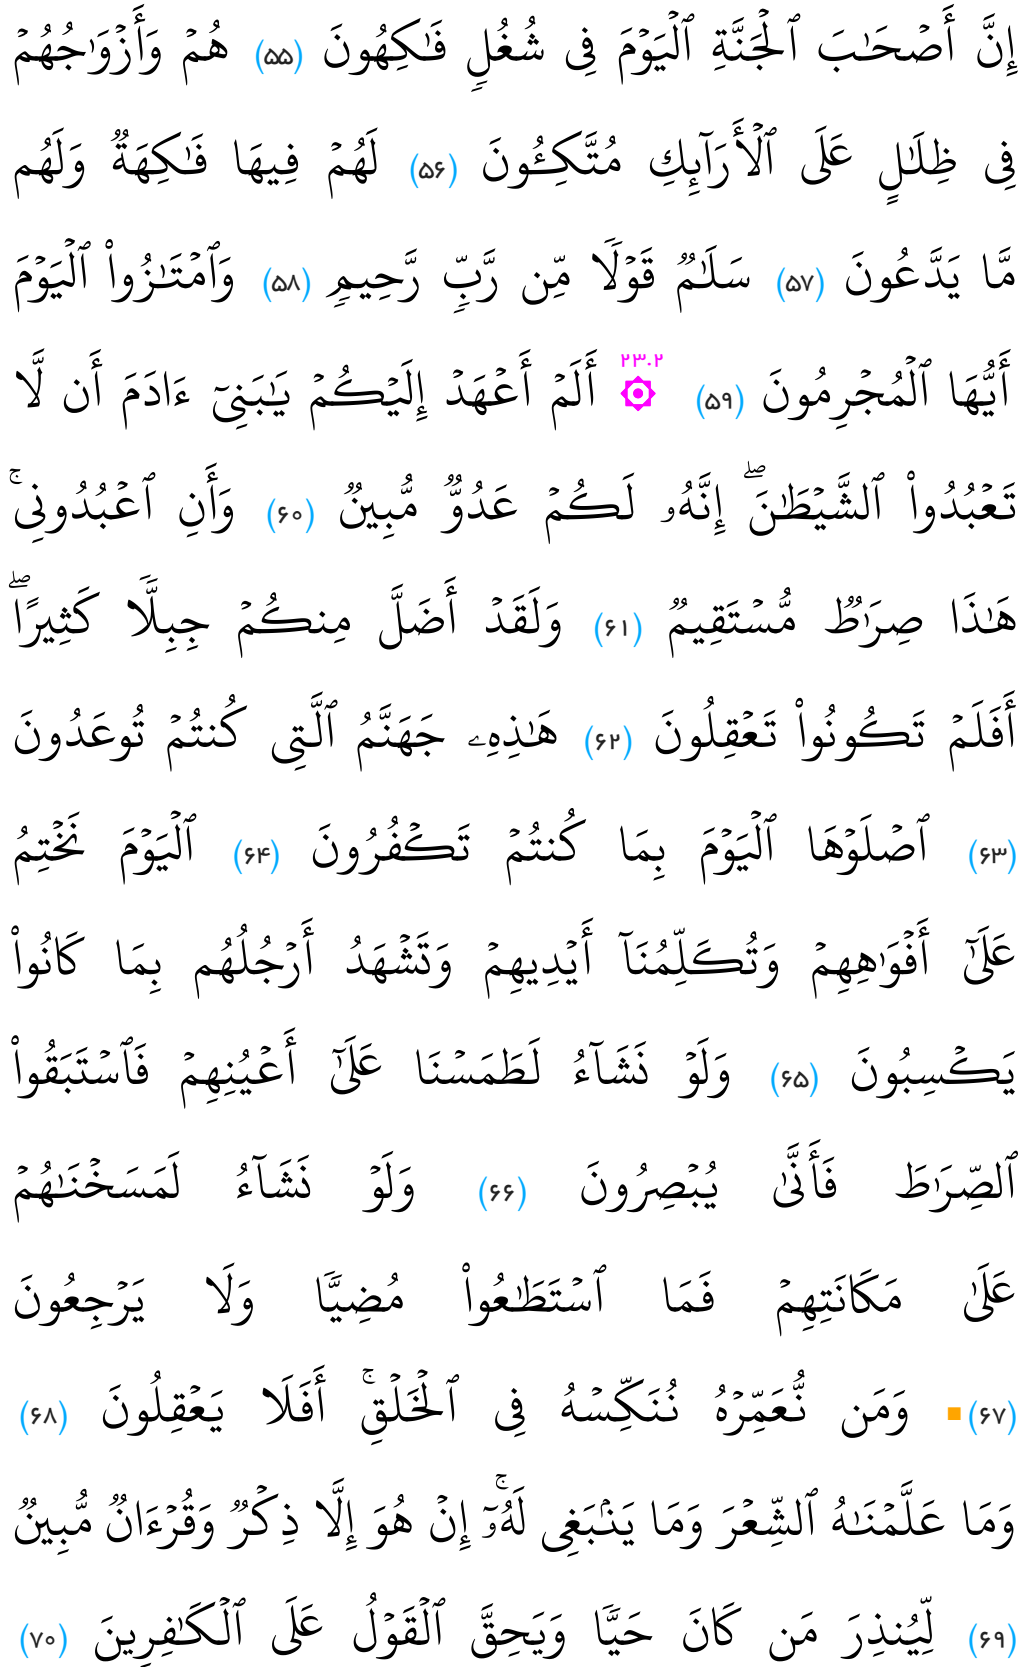 إِنَّ أَصۡحَٰبَ ٱلۡجَنَّةِ ٱلۡيَوۡمَ فِي شُغُلٖ فَٰكِهُونَ (۵۵) هُمۡ وَأَزۡوَٰجُهُمۡ
فِي ظِلَٰلٍ عَلَى ٱلۡأَرَآئِكِ مُتَّكِـُٔونَ (۵۶) لَهُمۡ فِيهَا فَٰكِهَةٞ وَلَهُم
مَّا يَدَّعُونَ (۵۷) سَلَٰمٞ قَوۡلٗا مِّن رَّبّٖ رَّحِيمٖ (۵۸) وَٱمۡتَٰزُواْ ٱلۡيَوۡمَ
أَيُّهَا ٱلۡمُجۡرِمُونَ (۵۹) ۲۳.۲ ۞ أَلَمۡ أَعۡهَدۡ إِلَيۡكُمۡ يَٰبَنِيٓ ءَادَمَ أَن لَّا
تَعۡبُدُواْ ٱلشَّيۡطَٰنَۖ إِنَّهُۥ لَكُمۡ عَدُوّٞ مُّبِينٞ (۶۰) وَأَنِ ٱعۡبُدُونِيۚ
هَٰذَا صِرَٰطٞ مُّسۡتَقِيمٞ (۶۱) وَلَقَدۡ أَضَلَّ مِنكُمۡ جِبِلّٗا كَثِيرًاۖ
أَفَلَمۡ تَكُونُواْ تَعۡقِلُونَ (۶۲) هَٰذِهِۦ جَهَنَّمُ ٱلَّتِي كُنتُمۡ تُوعَدُونَ
(۶۳) ٱصۡلَوۡهَا ٱلۡيَوۡمَ بِمَا كُنتُمۡ تَكۡفُرُونَ (۶۴) ٱلۡيَوۡمَ نَخۡتِمُ
عَلَىٰٓ أَفۡوَٰهِهِمۡ وَتُكَلِّمُنَآ أَيۡدِيهِمۡ وَتَشۡهَدُ أَرۡجُلُهُم بِمَا كَانُواْ
يَكۡسِبُونَ (۶۵) وَلَوۡ نَشَآءُ لَطَمَسۡنَا عَلَىٰٓ أَعۡيُنِهِمۡ فَٱسۡتَبَقُواْ
ٱلصِّرَٰطَ فَأَنَّىٰ يُبۡصِرُونَ (۶۶) وَلَوۡ نَشَآءُ لَمَسَخۡنَٰهُمۡ
عَلَىٰ مَكَانَتِهِمۡ فَمَا ٱسۡتَطَٰعُواْ مُضِيّٗا وَلَا يَرۡجِعُونَ
(۶۷) وَمَن نُّعَمِّرۡهُ نُنَكِّسۡهُ فِي ٱلۡخَلۡقِۚ أَفَلَا يَعۡقِلُونَ (۶۸)
وَمَا عَلَّمۡنَٰهُ ٱلشِّعۡرَ وَمَا يَنۢبَغِي لَهُۥٓۚ إِنۡ هُوَ إِلَّا ذِكۡرٞ وَقُرۡءَانٞ مُّبِينٞ
(۶۹) لِّيُنذِرَ مَن كَانَ حَيّٗا وَيَحِقَّ ٱلۡقَوۡلُ عَلَى ٱلۡكَٰفِرِينَ (۷۰)